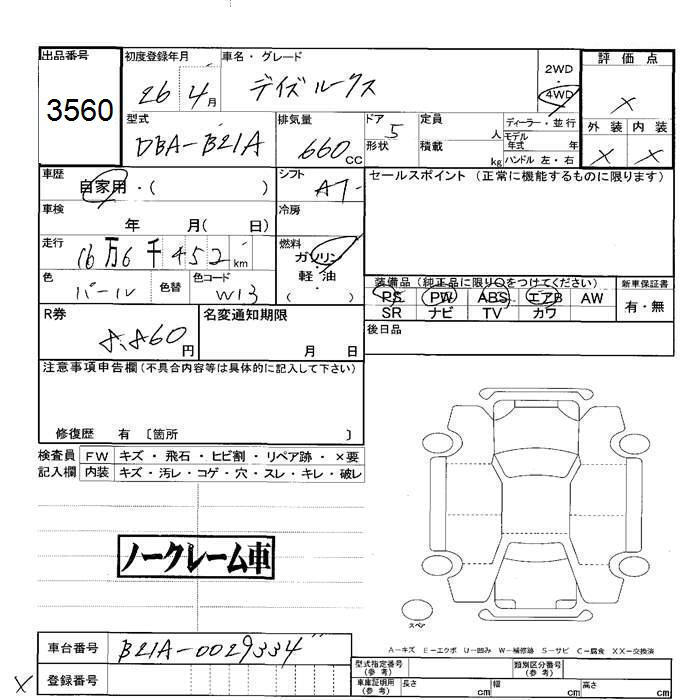 出品番号 初度登録年月 車名・グレード 評価点
3560 26年4月 デイズルークス 2WD・4WD ×
型式 排気量 ドア 定員 ディーラー・並行 外装 内装
DBA-B21A 660CC 5 人 モデル年式 年 × ×
形状 積載 kg ハンドル 左・右
車歴 シフト セールスポイント (正常に機能するものに限ります)
自家用・( ) AT
車検 冷房
年 月( 日)
走行 燃料
16万6千452km ガソリン
軽・油
( )
色 色替 色コード
パール W13
装備品 (純正品に限り○をつけてください) 新車保証書
PS PW ABS エアB AW 有・無
SR ナビ TV カワ
R券 名変通知期限 後日品
8,860円 月 日
注意事項申告欄 (不具合内容等は具体的に記入して下さい)
修復歴 有 〔箇所 〕
検査員 FW キズ・飛石・ヒビ割・リペア跡・×要
記入欄 内装 キズ・汚レ・コゲ・穴・スレ・キレ・破レ
ノークレーム車
スペア
A-キズ E-エクボ U-凹み W-補修跡 S-サビ C-腐食 XX-交換済
車台番号 B21A-0029334
型式指定番号(参考) 類別区分番号(参考)
× 登録番号
車庫証明用(参考) 長さ cm 幅 cm 高さ cm